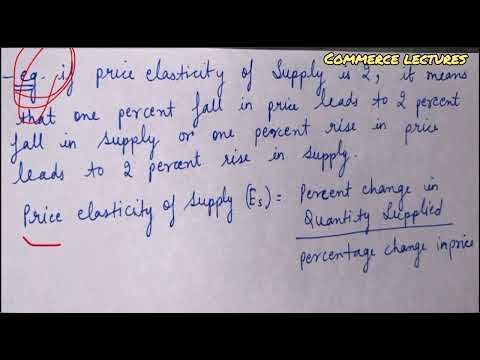 COMMERCE LECTURES
- eg. if price elasticity of Supply is 2, it means
that one percent fall in price leads to 2 percent
fall in supply or one percent rise in price
leads to 2 percent rise in supply.
Price elasticity of supply (Es) = Percent change in
Quantity Supplied
percentage change in price